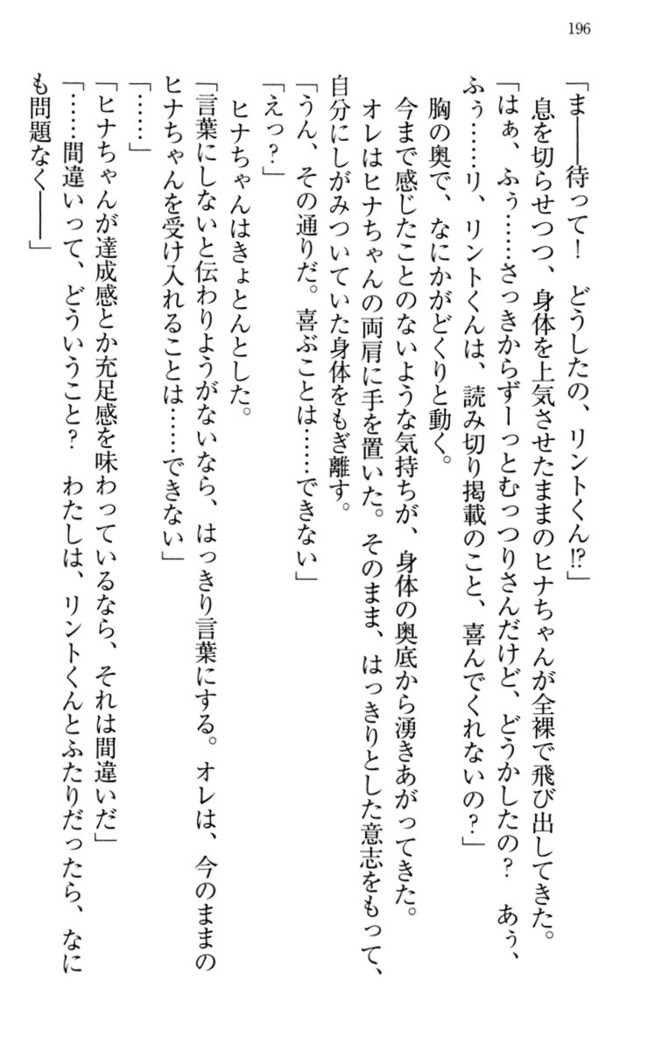 196
「ま――待って！　どうしたの、リントくん!?」
　息を切らせつつ、身体を上気させたままのヒナちゃんが全裸で飛び出してきた。
「はぁ、ふぅ……さっきからずーっとむっつりさんだけど、どうかしたの？　あぅ、
ふぅ……リ、リントくんは、読み切り掲載のこと、喜んでくれないの？」
　胸の奥で、なにかがどくりと動く。
　今まで感じたことのないような気持ちが、身体の奥底から湧きあがってきた。
　オレはヒナちゃんの両肩に手を置いた。そのまま、はっきりとした意志をもって、
自分にしがみついていた身体をもぎ離す。
「うん、その通りだ。喜ぶことは……できない」
「えっ？」
　ヒナちゃんはきょとんとした。
「言葉にしないと伝わりようがないなら、はっきり言葉にする。オレは、今のままの
ヒナちゃんを受け入れることは……できない」
「……」
「ヒナちゃんが達成感とか充足感を味わっているなら、それは間違いだ」
「……間違いって、どういうこと？　わたしは、リントくんとふたりだったら、なに
も問題なく――」